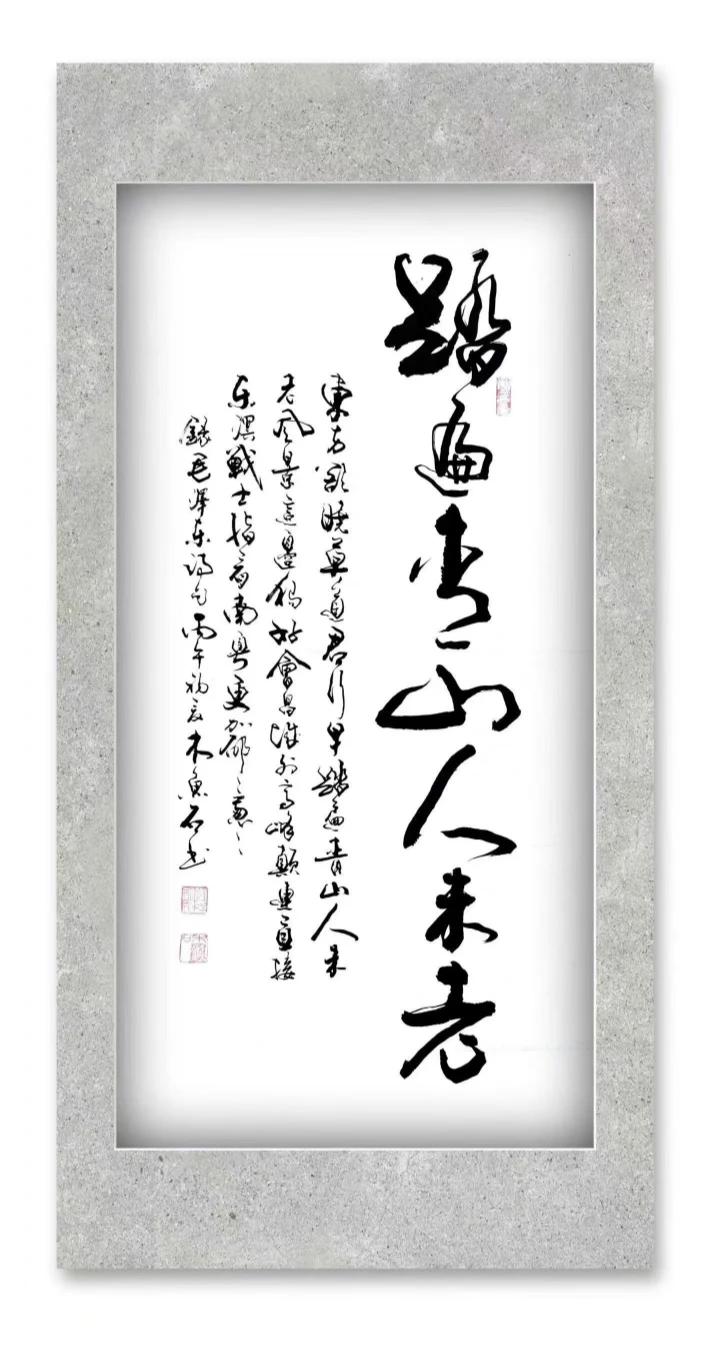 踏遍青山人未老
東方欲曉莫道君行早踏遍青山人未
老风景這邊獨好會昌城外高峰顛連直接
东溟戰士指看南粤更加郁〻葱〻
錄毛澤东詩句丙午初夏木魚石书